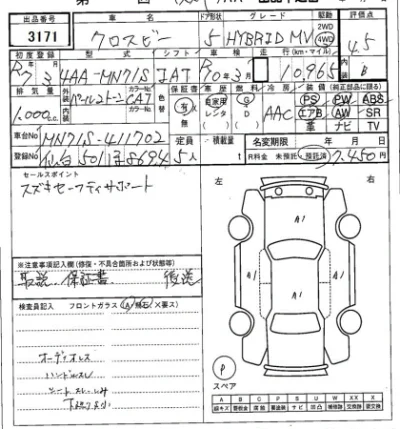 出品番号 車名 ドア形状 グレード 駆動 評価点
3171 クロスビー 5 HYBRID MV 2WD 4WD 4.5
初度登録 型式 シフト 走行(km・マイル) 内装
R7 3 4AA-MN71S IAT R10年3月 10,965 B
排気量 外装 カラーNo. 色替 車歴 燃料 冷房 装備(純正部品に限る)
1.000cc パールツートーン CA7 有 自家用 レンタ G D AAC PS PW ABS
エアB AW SR
革 ナビ TV
車台No MN71S-411702 定員 積載量 名変期限 年 月 日
登録No 仙台 501 ほ 8694 5人 R料金 未預託 預託済 7,450円
セールスポイント 左 右
スズキセーフティサポート
A1
A1 A1
A1
※注意事項記入欄(修復・不具合箇所および状態等)
取説 保証書 後送
検査員記入 フロントガラス(A/飛石)(X要ス)
オーディオレス
ハンドルスレ
シートスレ・しみ
下廻りサビ小
P
スペア
A B C P S U W X XX